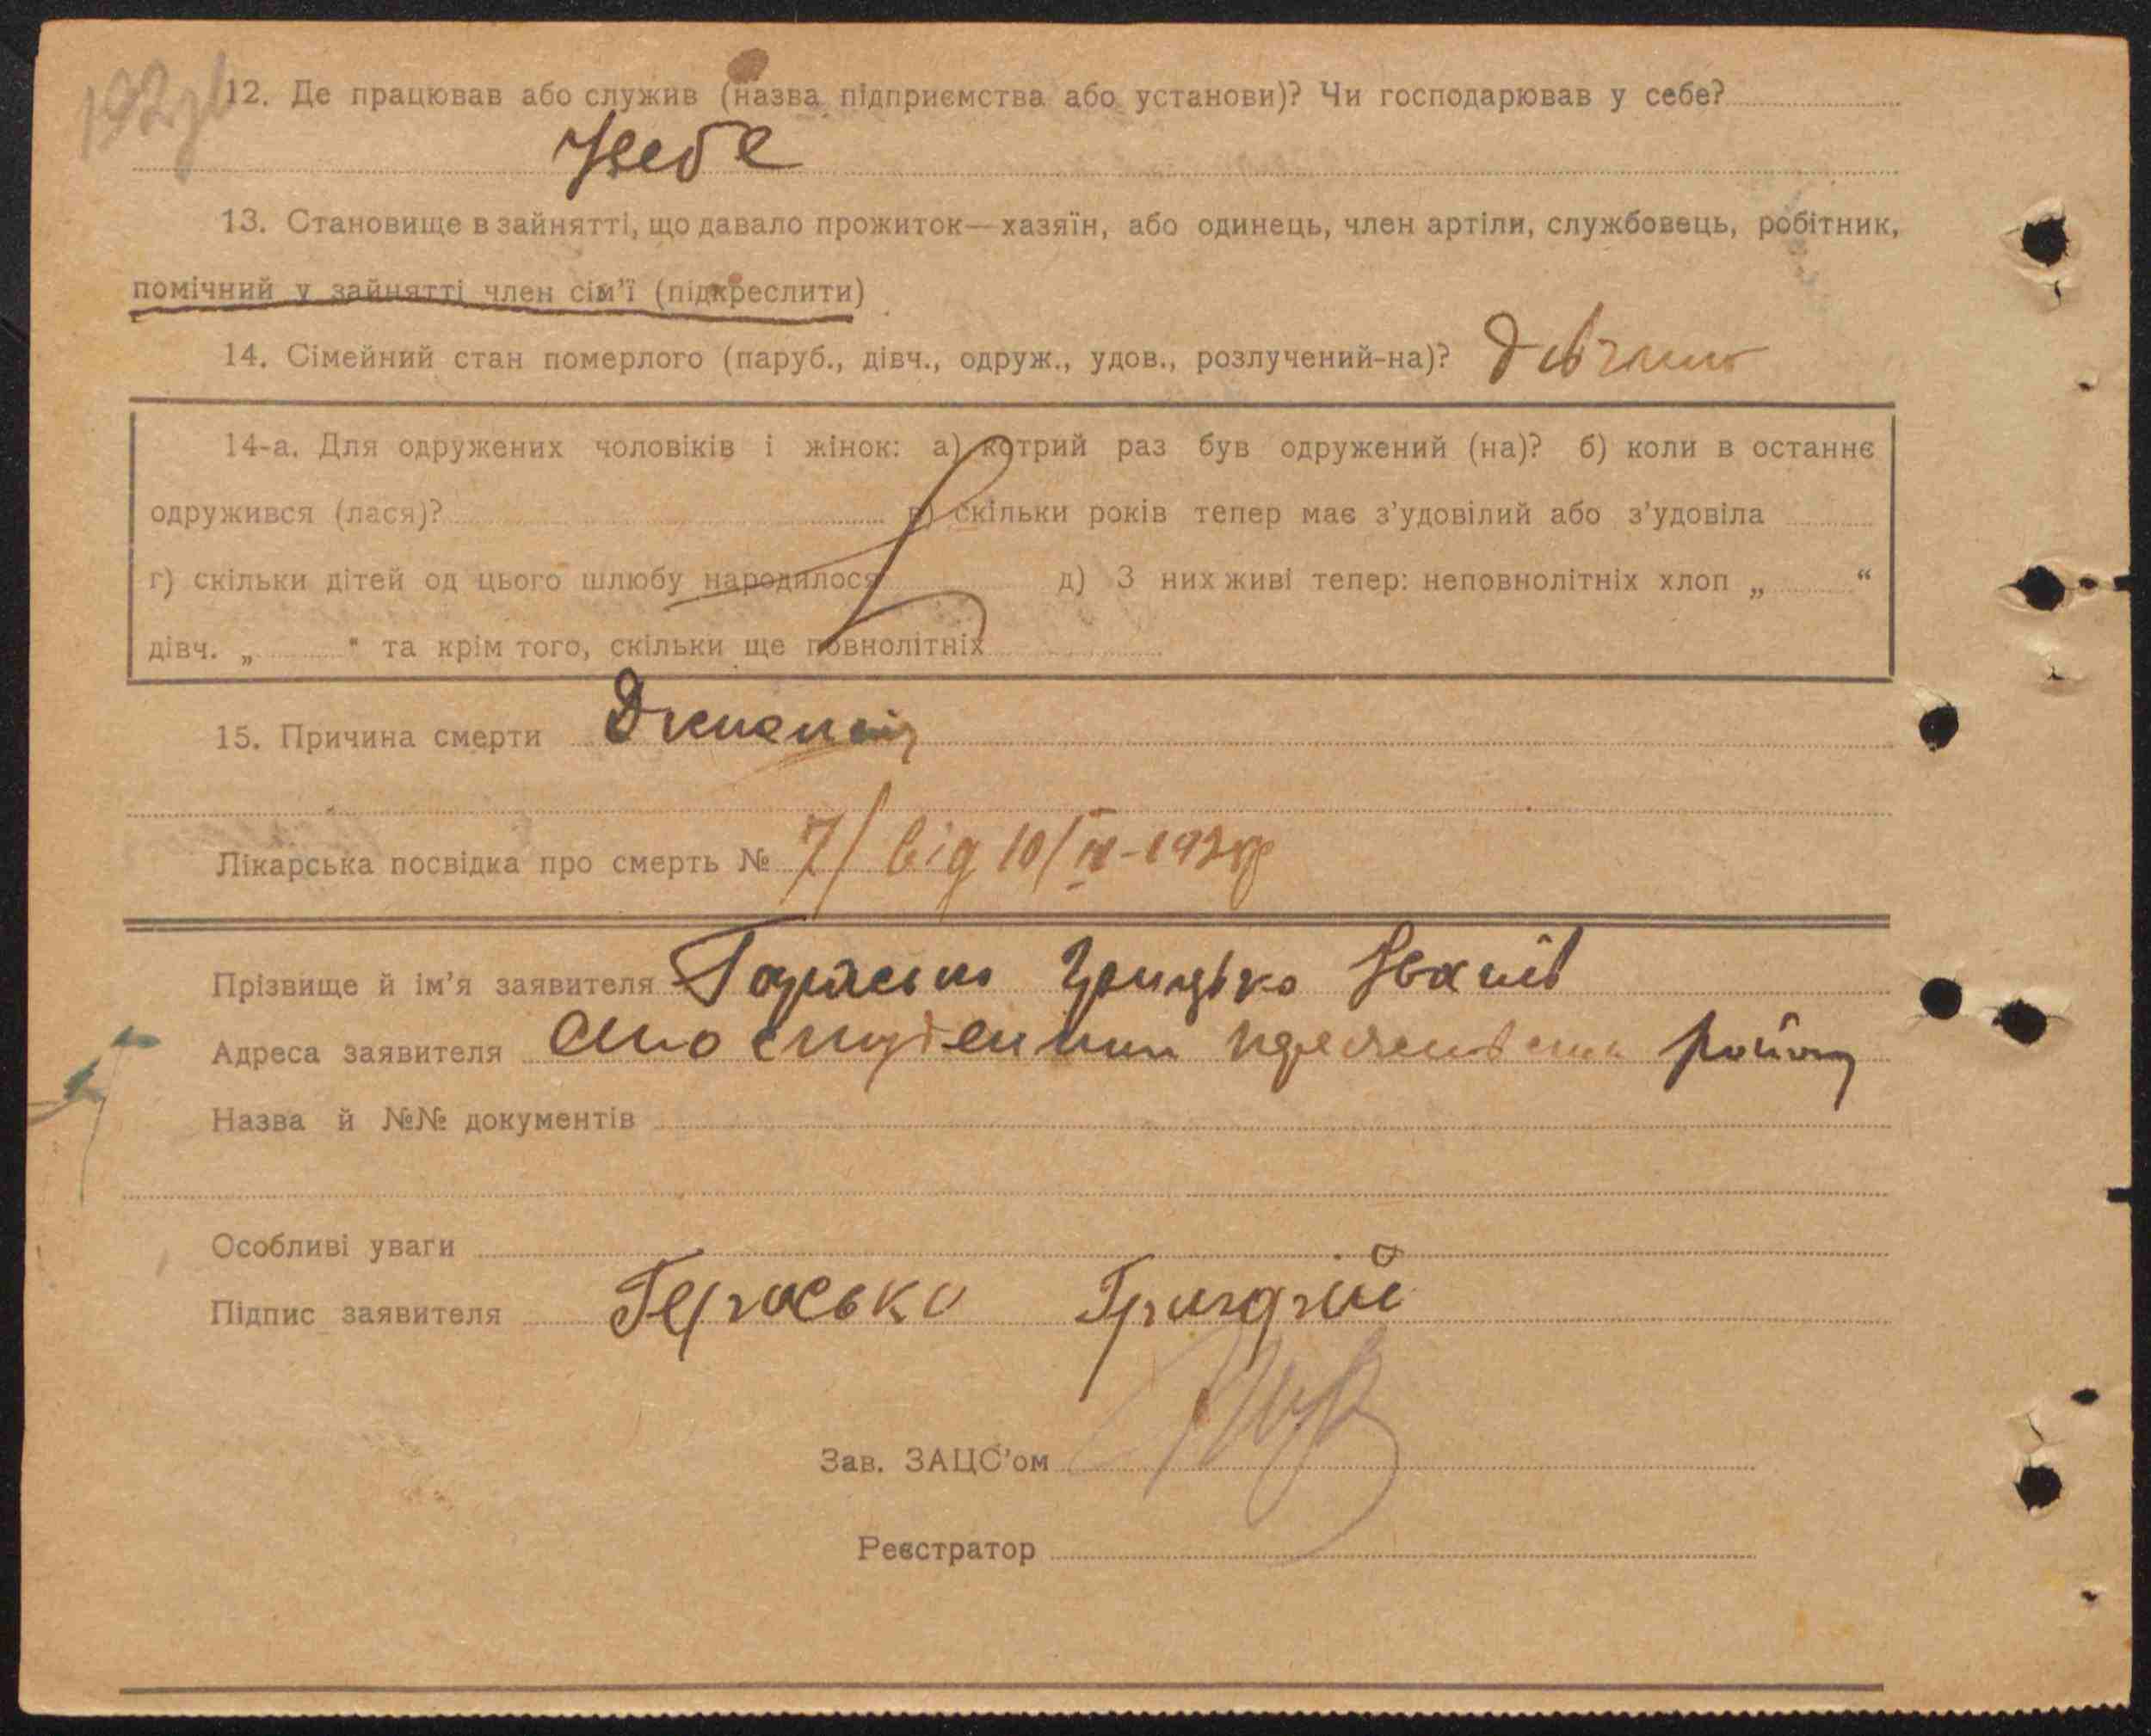 192
12. Де працював або служив (назва підприємства або установи)? Чи господарював у себе?
У себе
13. Становище в зайнятті, що давало прожиток—хазяїн, або одинець, член артіли, службовець, робітник,
помічний у зайнятті член сім'ї (підкреслити)
14. Сімейний стан померлого (паруб., дівч., одруж., удов., розлучений-на)?
14-а. Для одружених чоловіків і жінок: а) котрий раз був одружений (на)? б) коли в останнє
одружився (лася)? в) скільки років тепер має з'удовілий або з'удовіла
г) скільки дітей од цього шлюбу народилося д) З них живі тепер: неповнолітніх хлоп „ “
дівч. „ “ та крім того, скільки ще повнолітніх
15. Причина смерти
Лікарська посвідка про смерть № 7/ від 10/IV-193
Прізвище й ім'я заявителя Грицько Іванів
Адреса заявителя району
Назва й №№ документів
Особливі уваги
Підпис заявителя Герасько
Зав. ЗАЦС'ом
Реєстратор